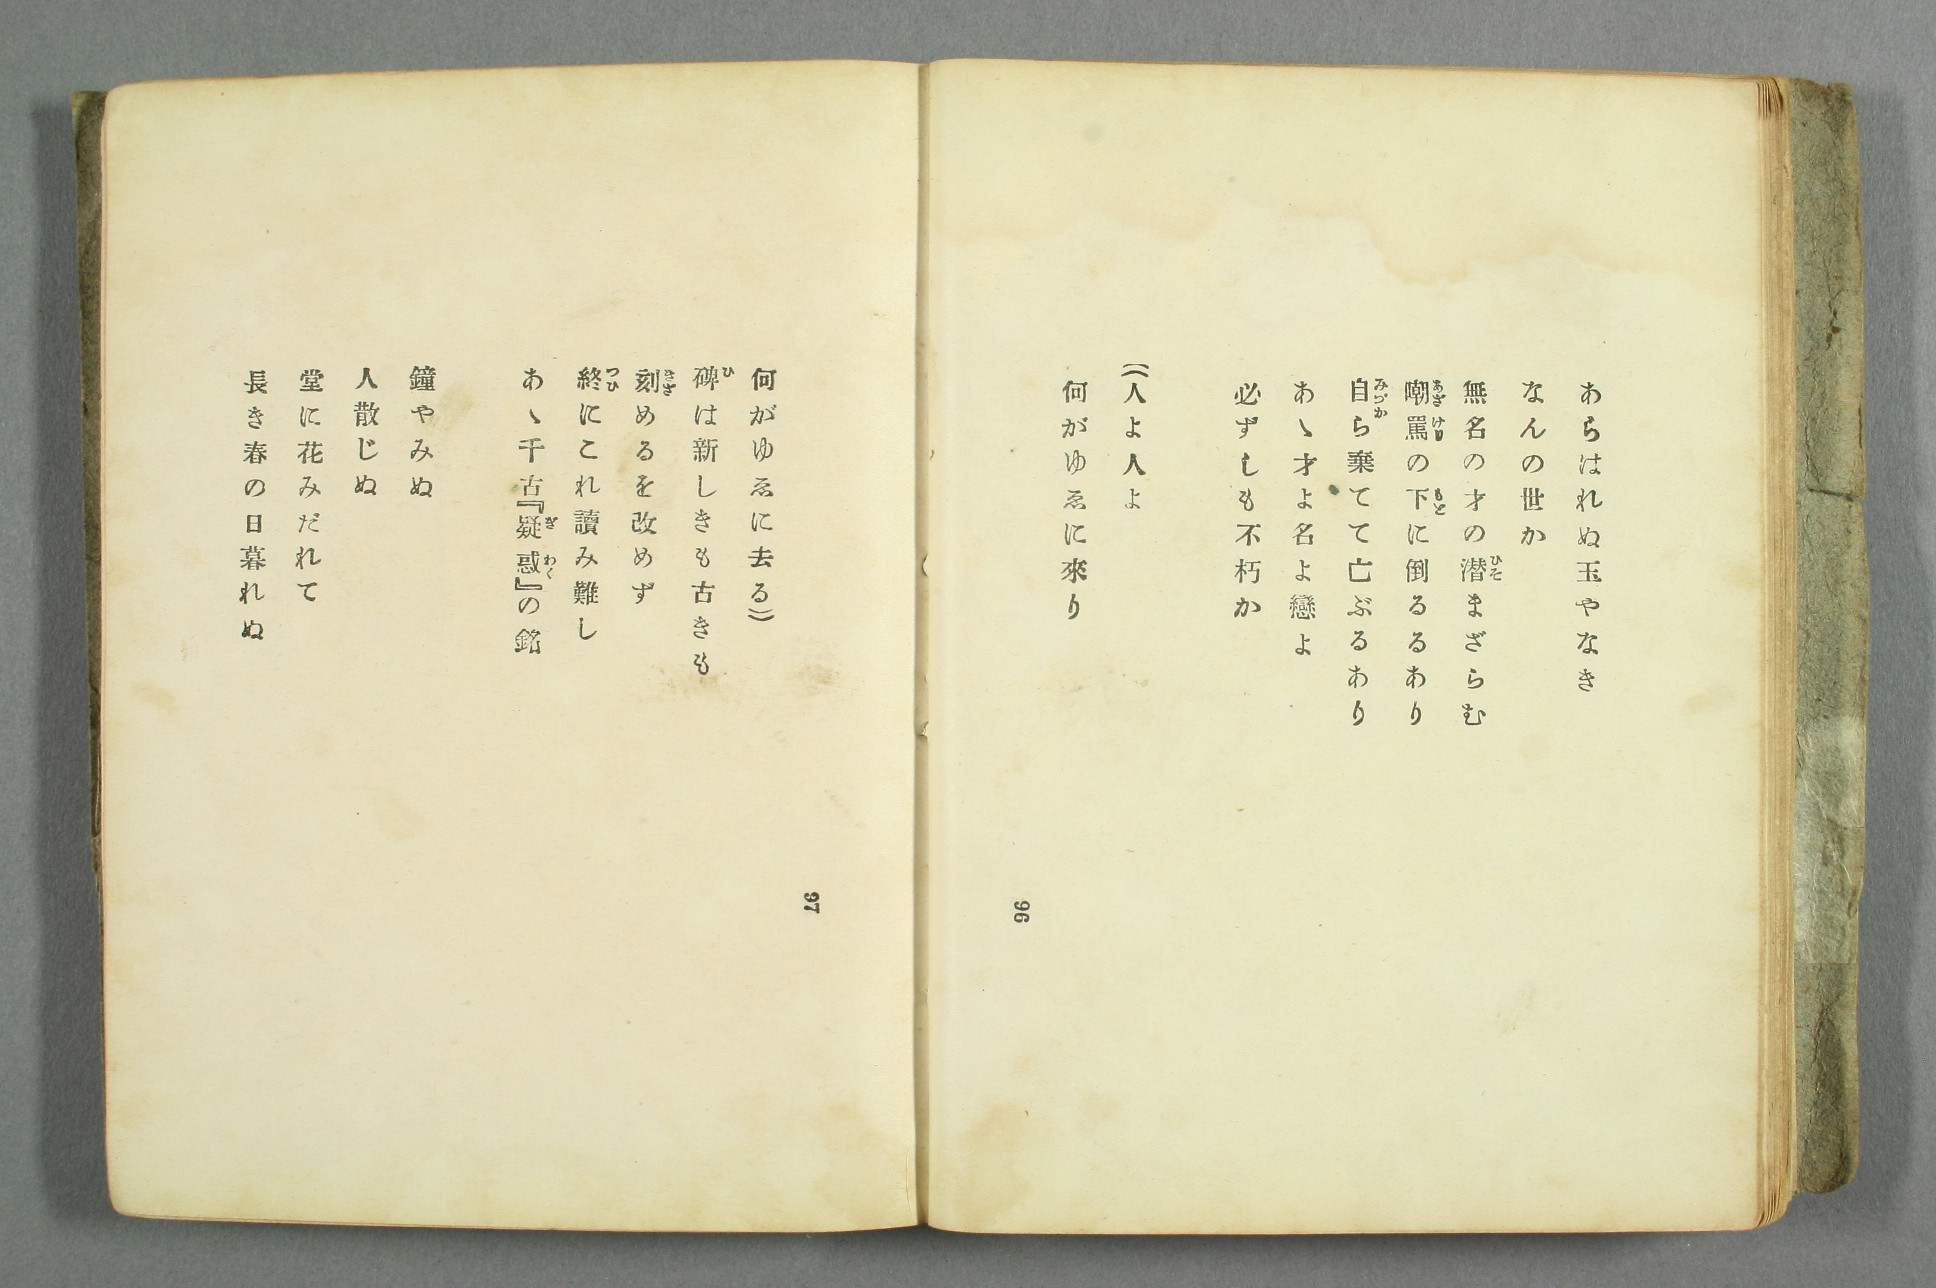 あらはれぬ玉やなき
なんの世か
無名の才の潜まざらむ
嘲罵の下に倒るるあり
自ら棄てて亡ぶるあり
あゝ才よ名よ戀よ
必ずしも不朽か
((人よ人よ
何がゆゑに來り
96
何がゆゑに去る))
碑は新しきも古きも
刻めるを改めず
終にこれ讀み難し
あゝ千古『疑惑』の銘
鐘やみぬ
人散じぬ
堂に花みだれて
長き春の日暮れぬ
97